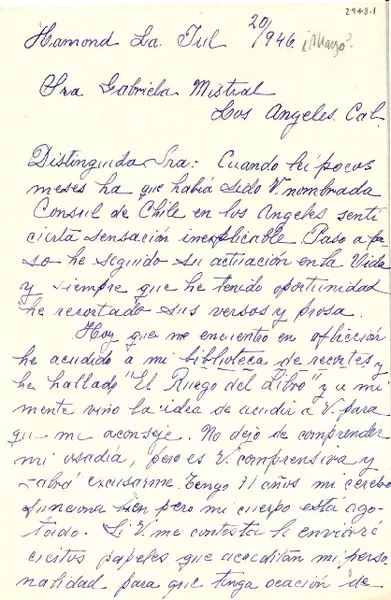 2948-1
Hamond La. Jul 20/946 ¿Marzo?
Sra Gabriela Mistral
Los Angeles. Cal.
Distinguida Sra: Cuando leí pocos
meses ha que había sido V. nombrada
Consul de Chile en los Angeles sentí
cierta sensación inexplicable. Paso a pa-
so he seguido su actuación en la Vida
y siempre que he tenido oportunidad
he recortado sus versos y prosa.
Hoy que me encuentro en aflicción
he acudido a mi biblioteca de recortes y
he hallado "El Ruego del Libro" y a mi
mente vino la idea de acudir a V. para
que me aconseje. No dejo de comprender
mi osadía, pero es V. comprensiva y
sabrá excusarme. Tengo 71 años mi cerebro
funciona bien pero mi cuerpo está ago-
tado. Si V. me contesta le enviaré
ciertos papeles que acreditan mi perso-
nalidad para que tenga ocación de